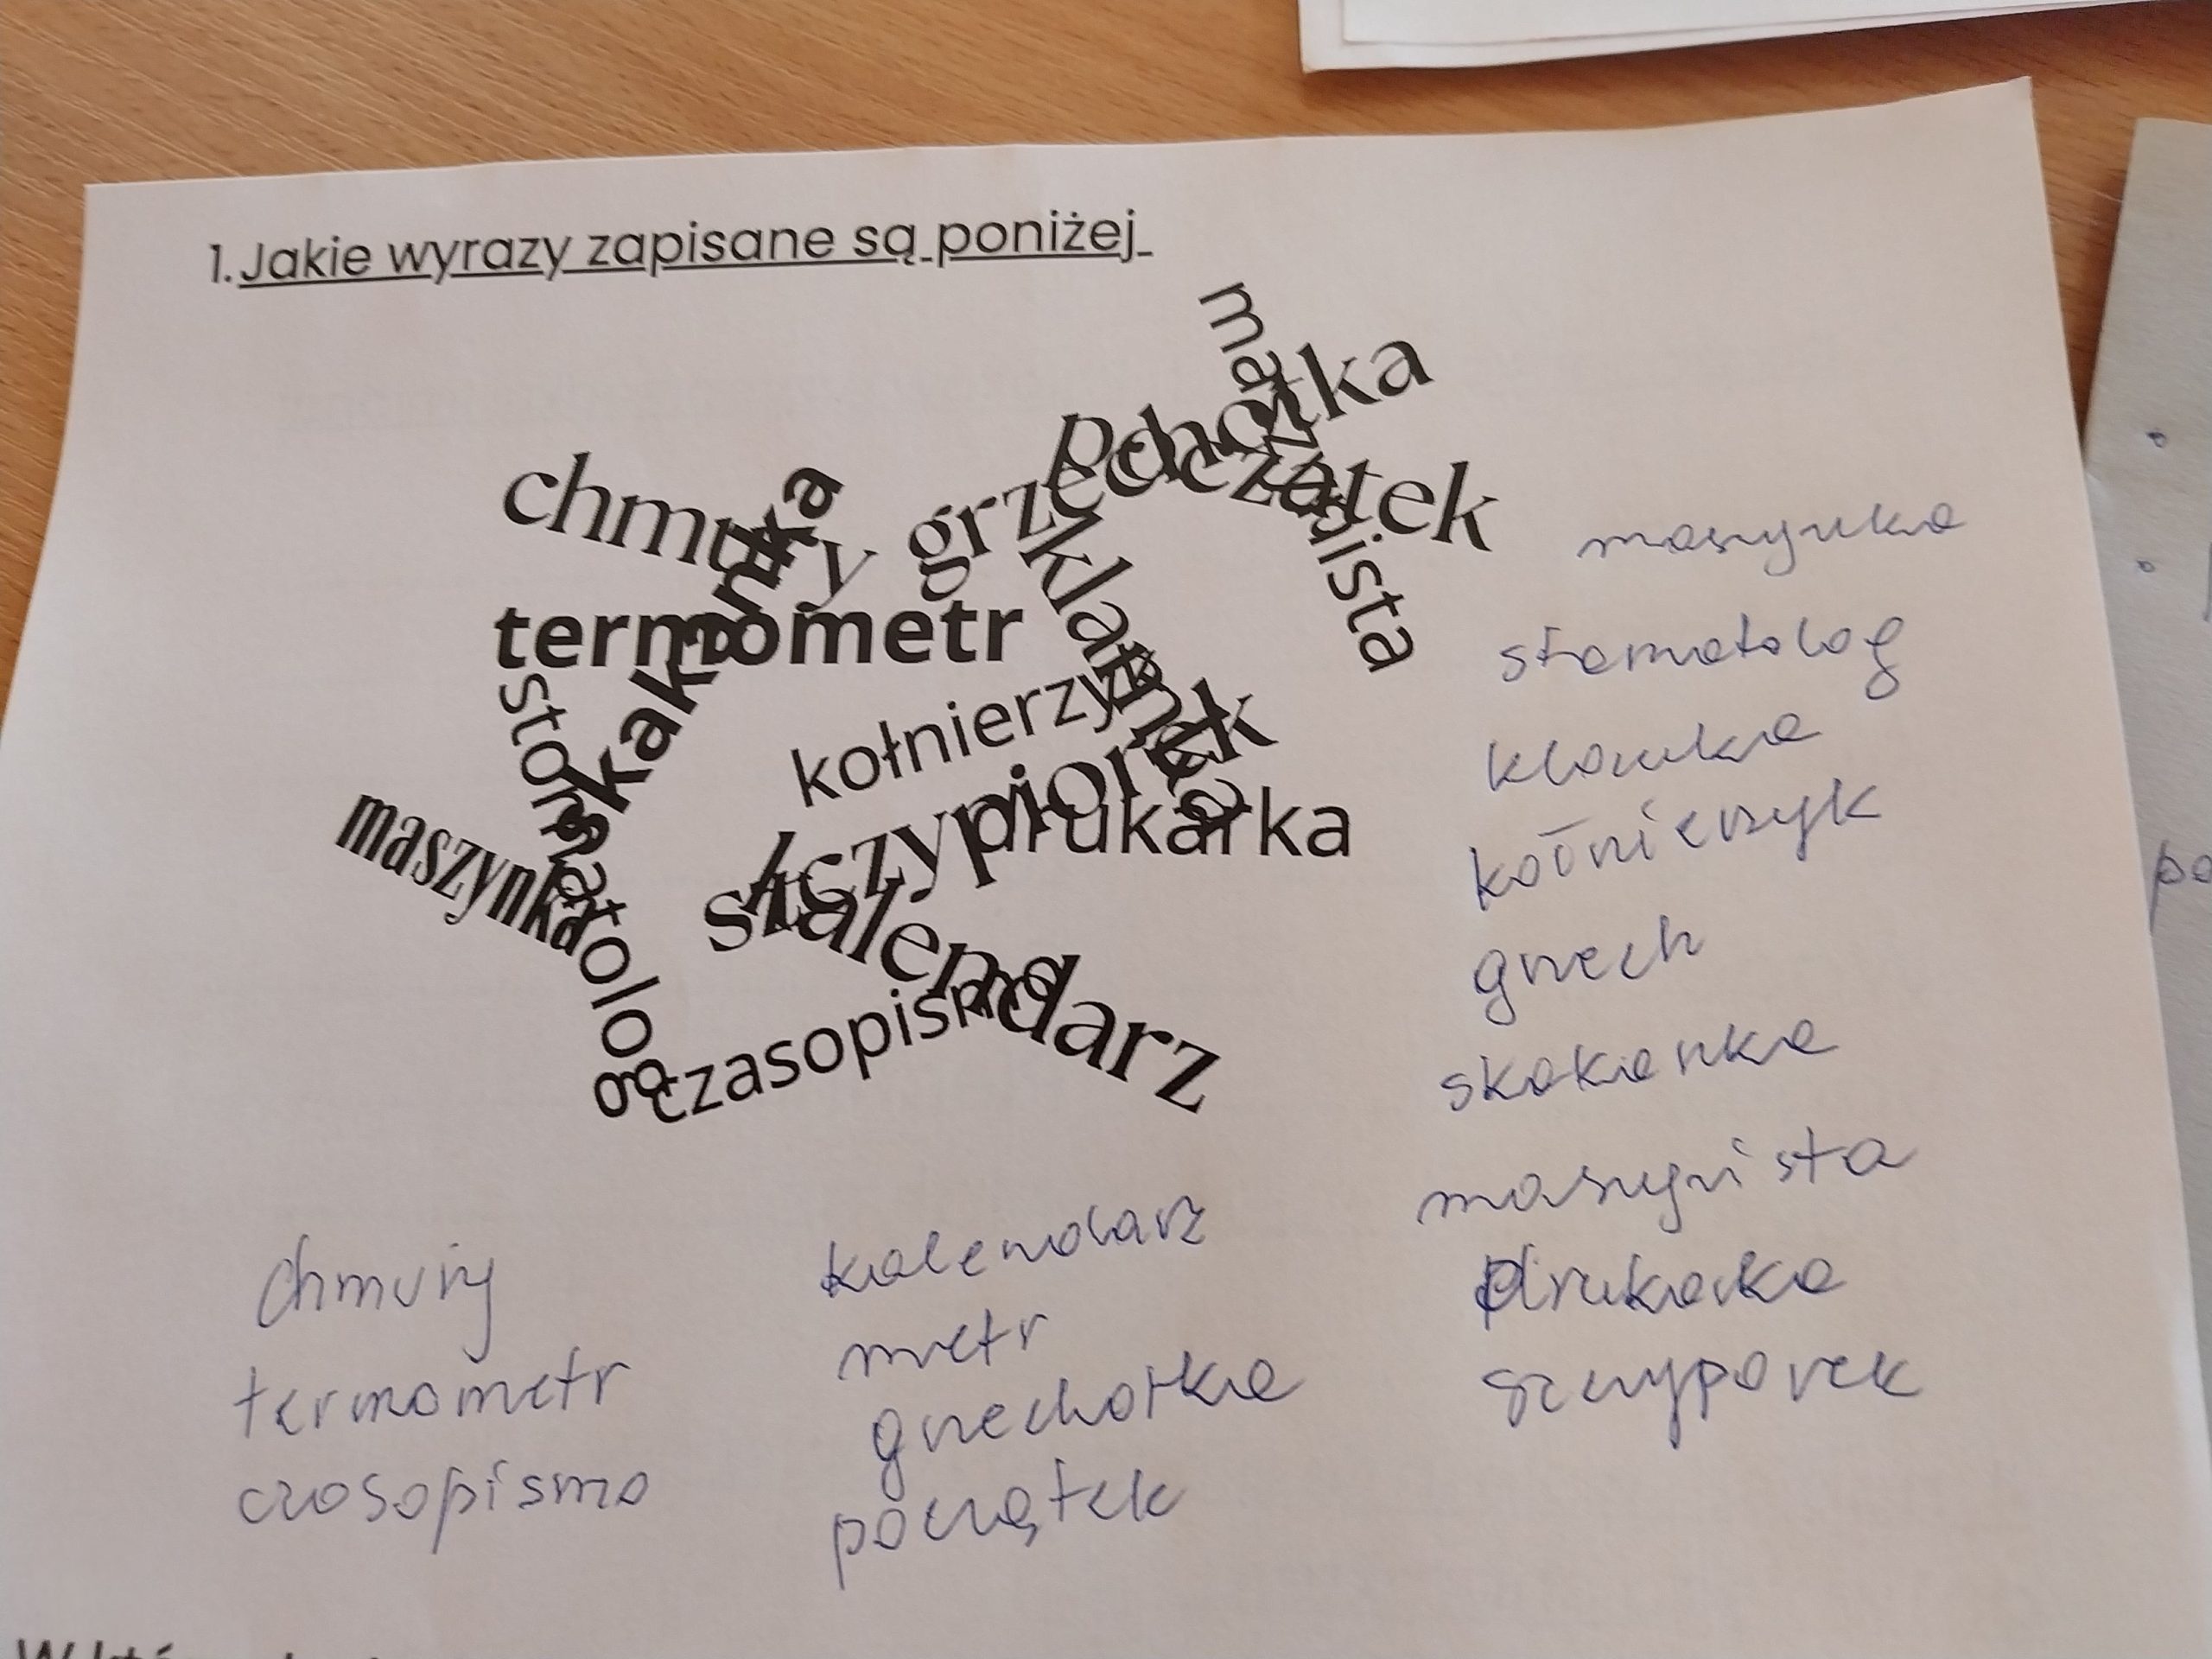 1. Jakie wyrazy zapisane są poniżej
chmury
skakanka
termometr
stomatolog
maszynka
grzechotka
początek
kołnierzyk
szczypiorek
drukarka
kalendarz
czasopismo
maszynka
stomatolog
kołnierzyk
grzech
skakanka
maszynista
drukarka
szczyporek
chmury
termometr
czasopismo
kalendarz
metr
grzechotka
początek